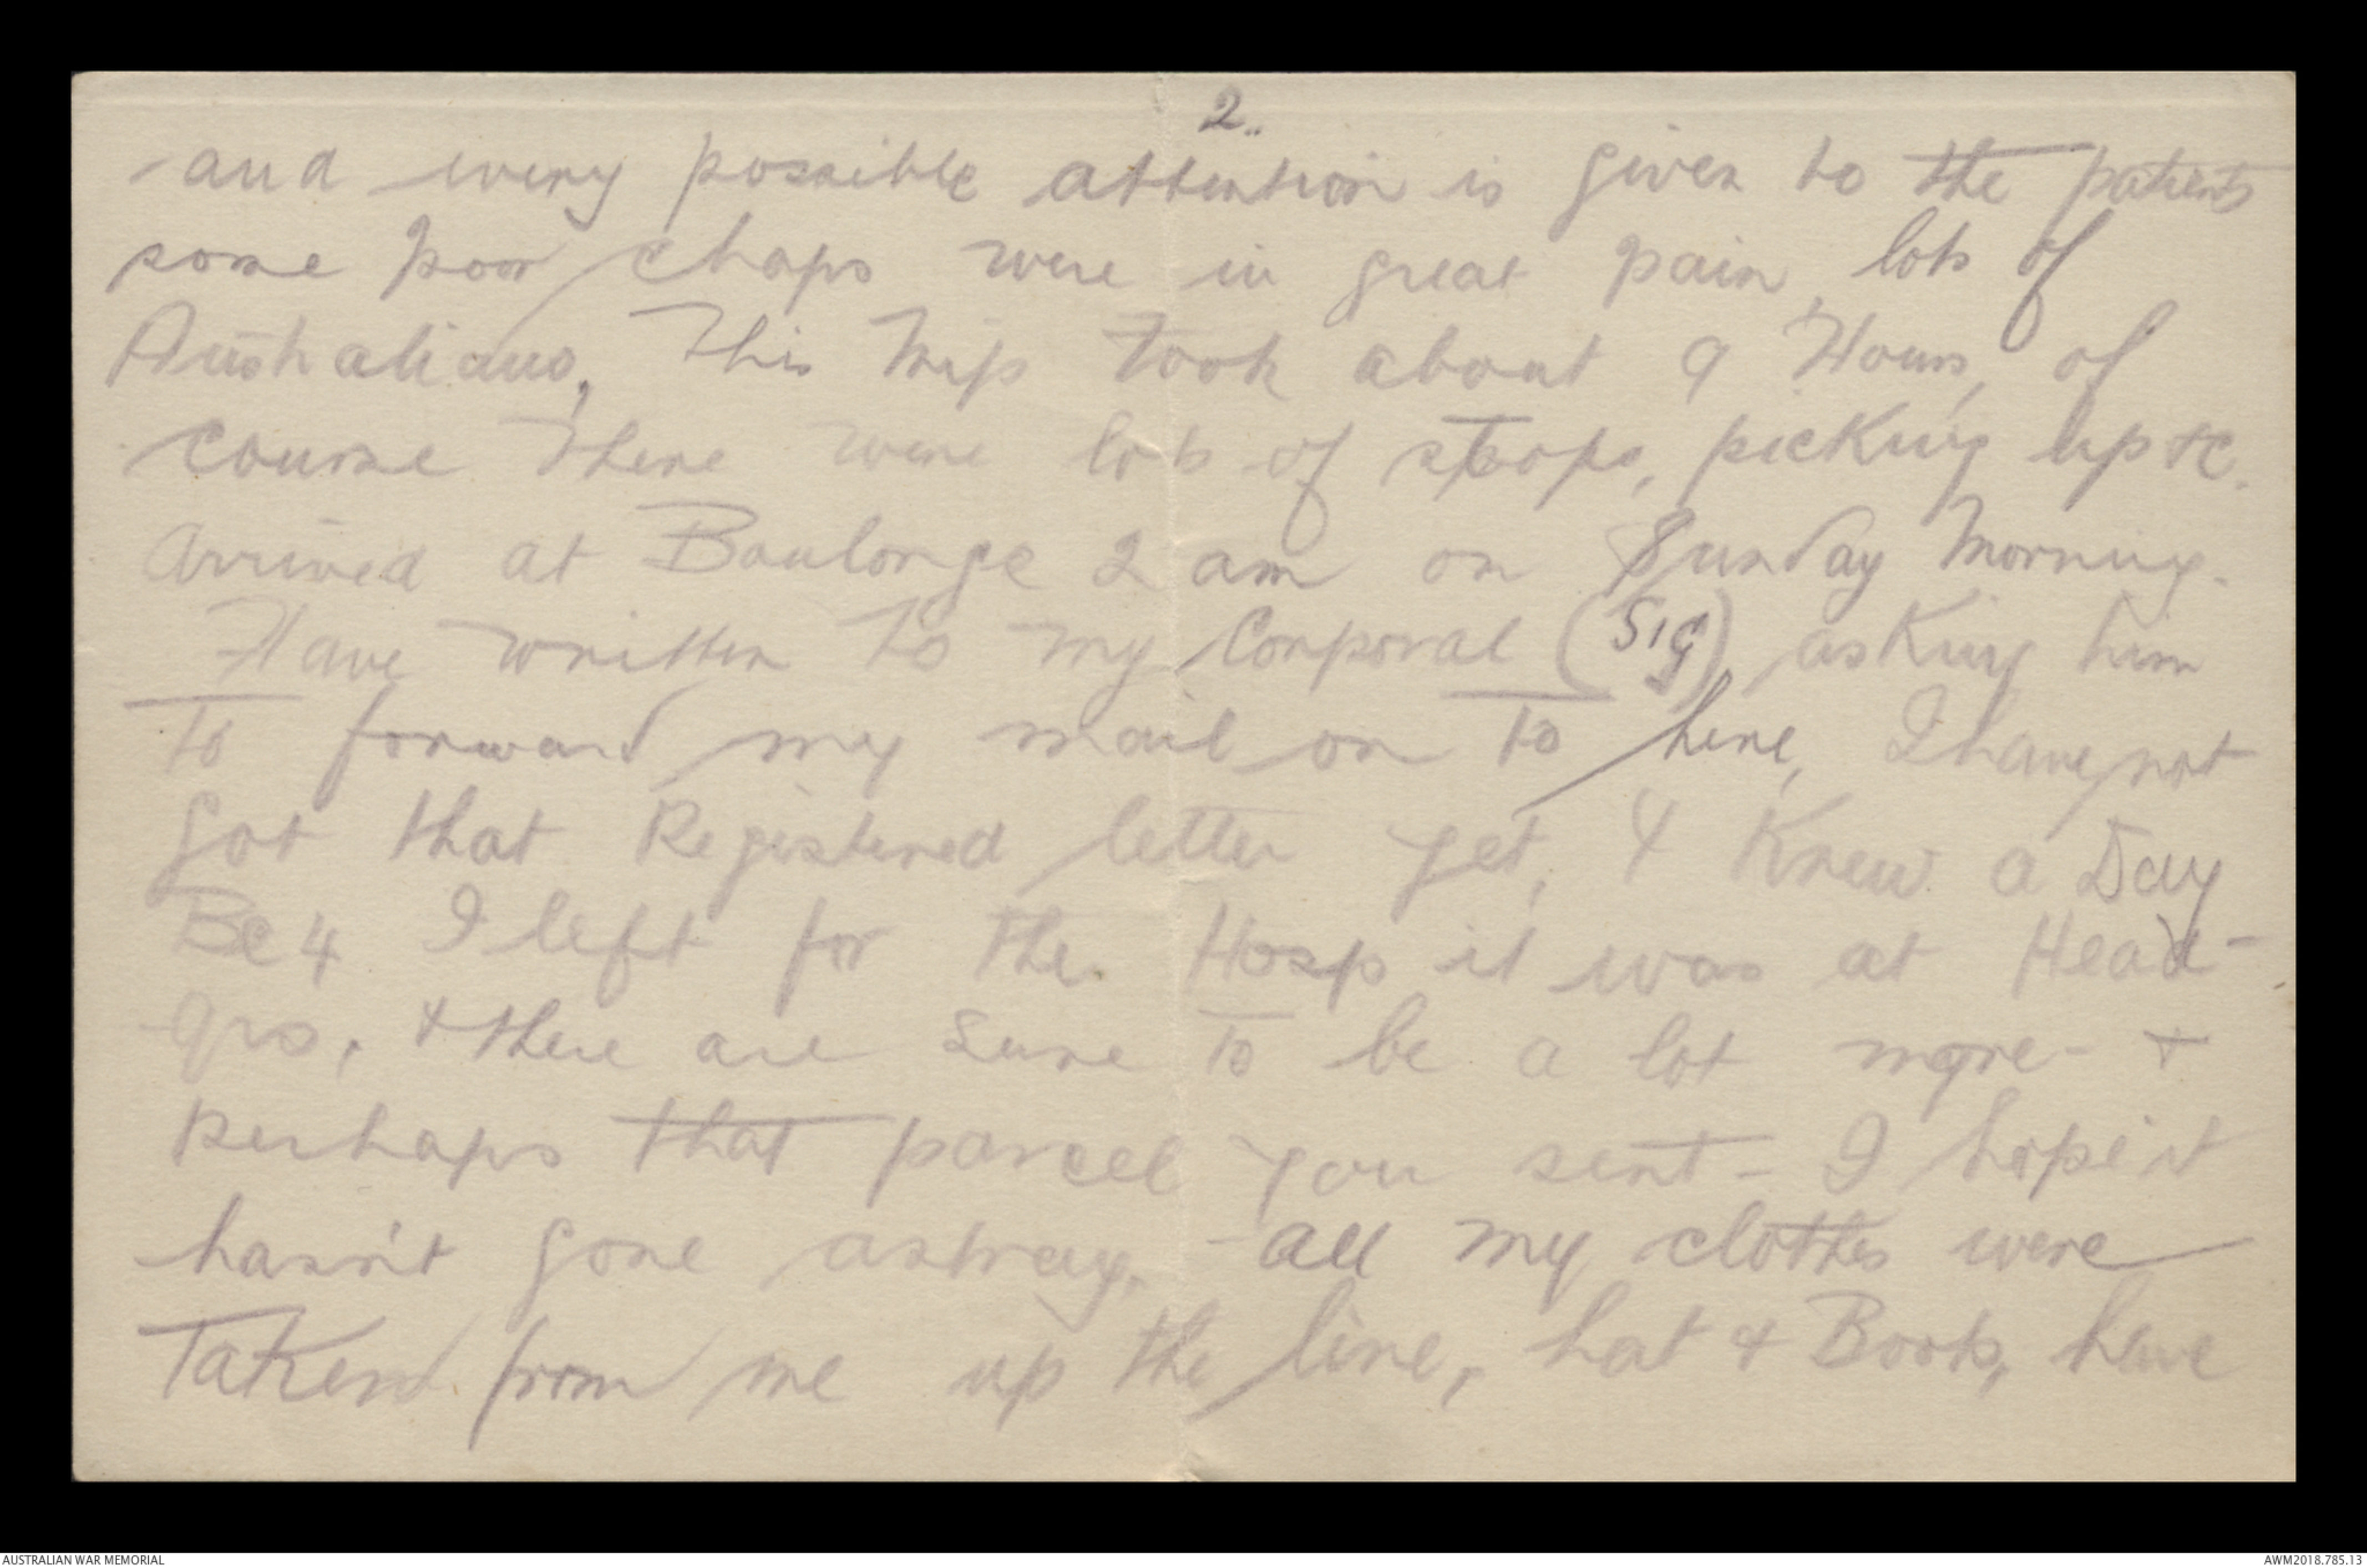 2..
and every possible attention is given to the patients
some poor chaps were in great pain, lots of
Australians, This Trip Took about 9 Hours, of
course There were lots of stops, picking up &c.
Arrived at Boulonge 2 am on Sunday Morning.
Have written to my Corporal (Sig) asking him
To forward my mail on To here, I have not
got that Registered letter yet, & Knew a Day
Be 4 I left for the Hosp it was at Head-
Qrs, & there are sure To be a lot more - &
perhaps that parcel you sent - I hope it
hasn't gone astray, - all my clothes were
Taken from me up the line, hat & Boots, have
AUSTRALIAN WAR MEMORIAL
AWM2018.785.13